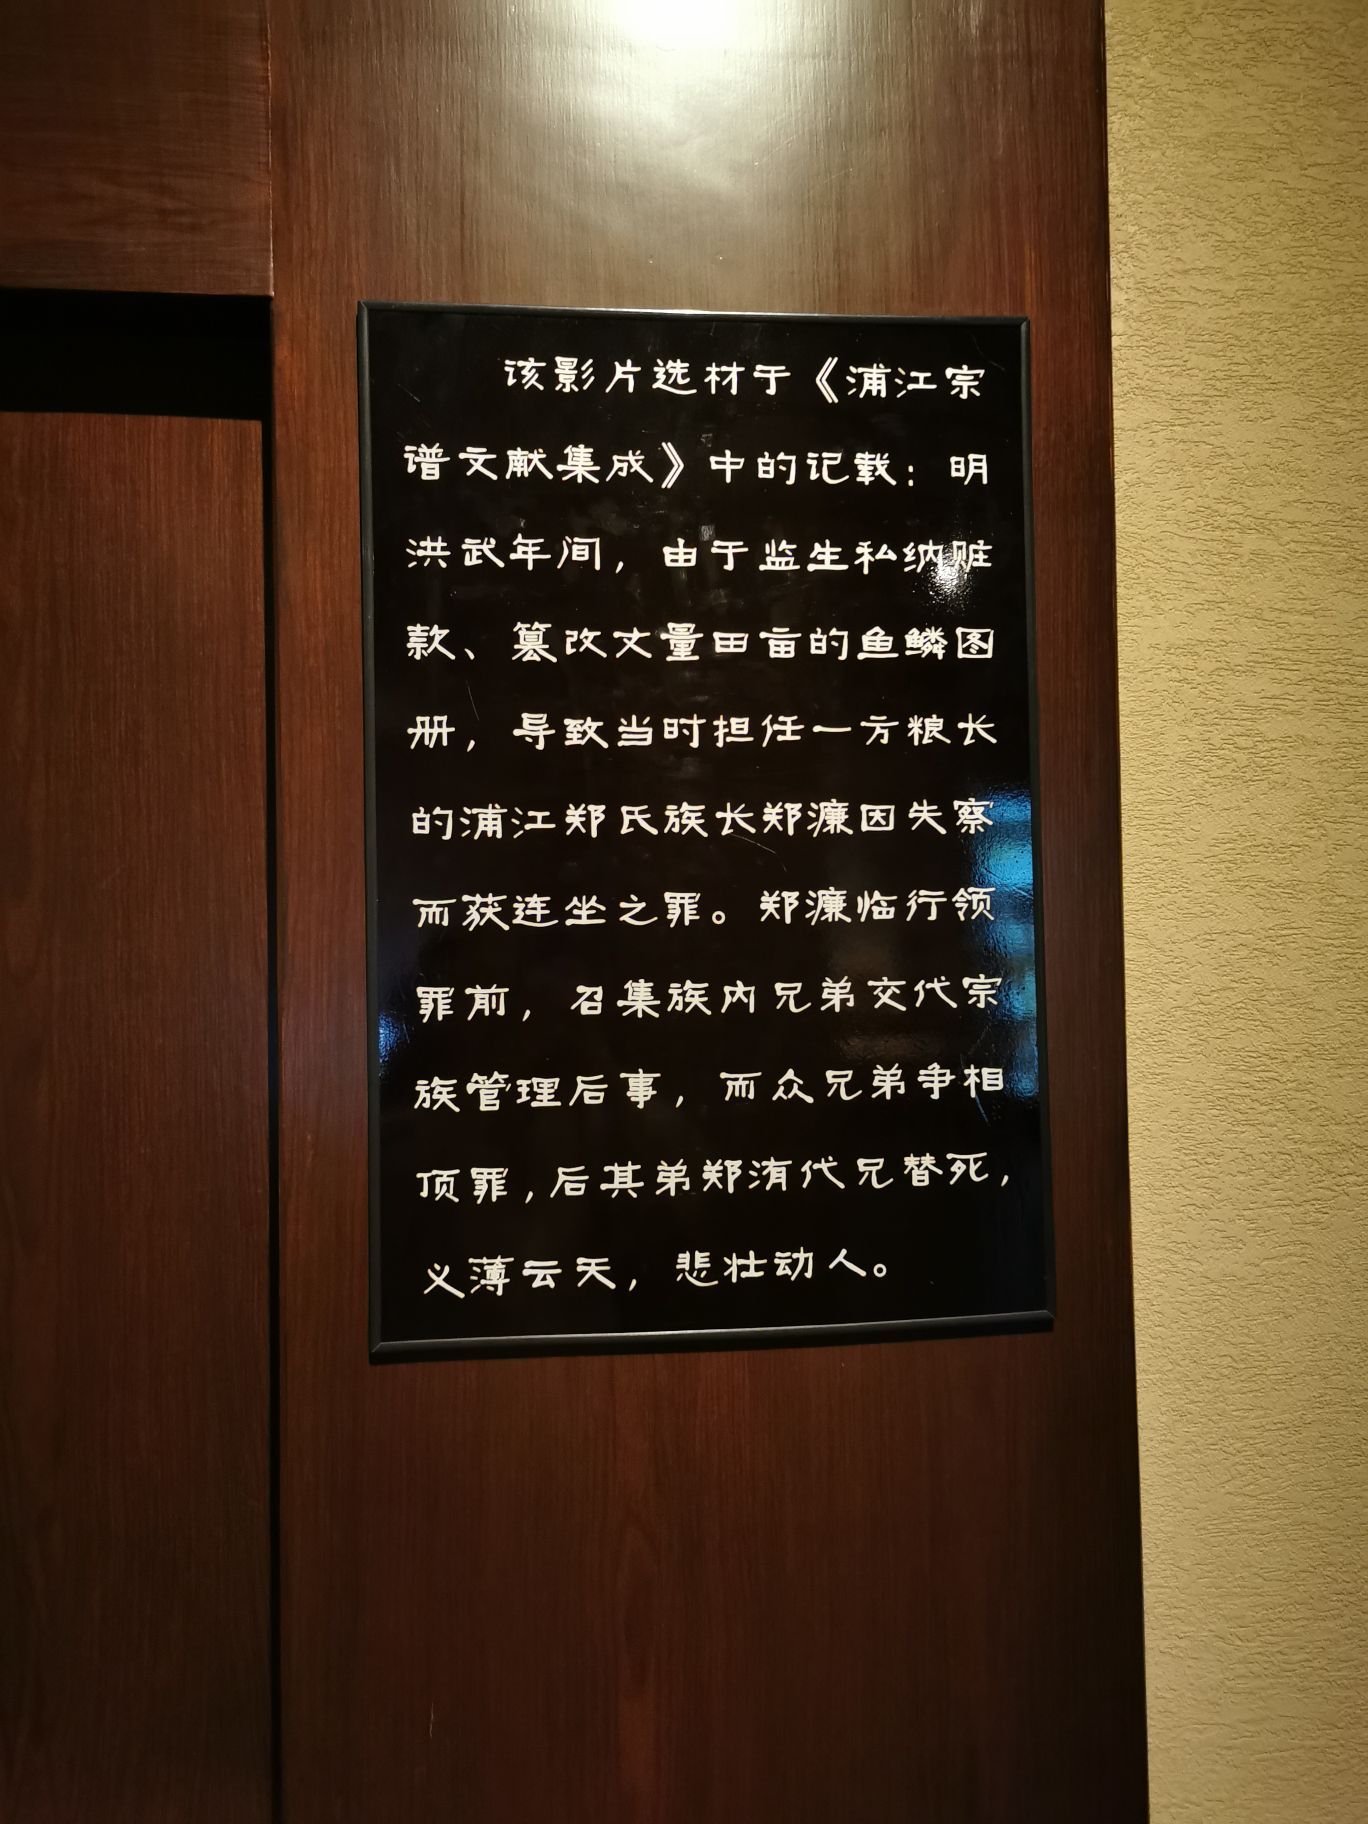 该影片选材于《浦江宗
谱文献集成》中的记载：明
洪武年间，由于监生私纳赃
款、篡改丈量田亩的鱼鳞图
册，导致当时担任一方粮长
的浦江郑氏族长郑濂因失察
而获连坐之罪。郑濂临行领
罪前，召集族内兄弟交代宗
族管理后事，而众兄弟争相
顶罪，后其弟郑洧代兄替死，
义薄云天，悲壮动人。